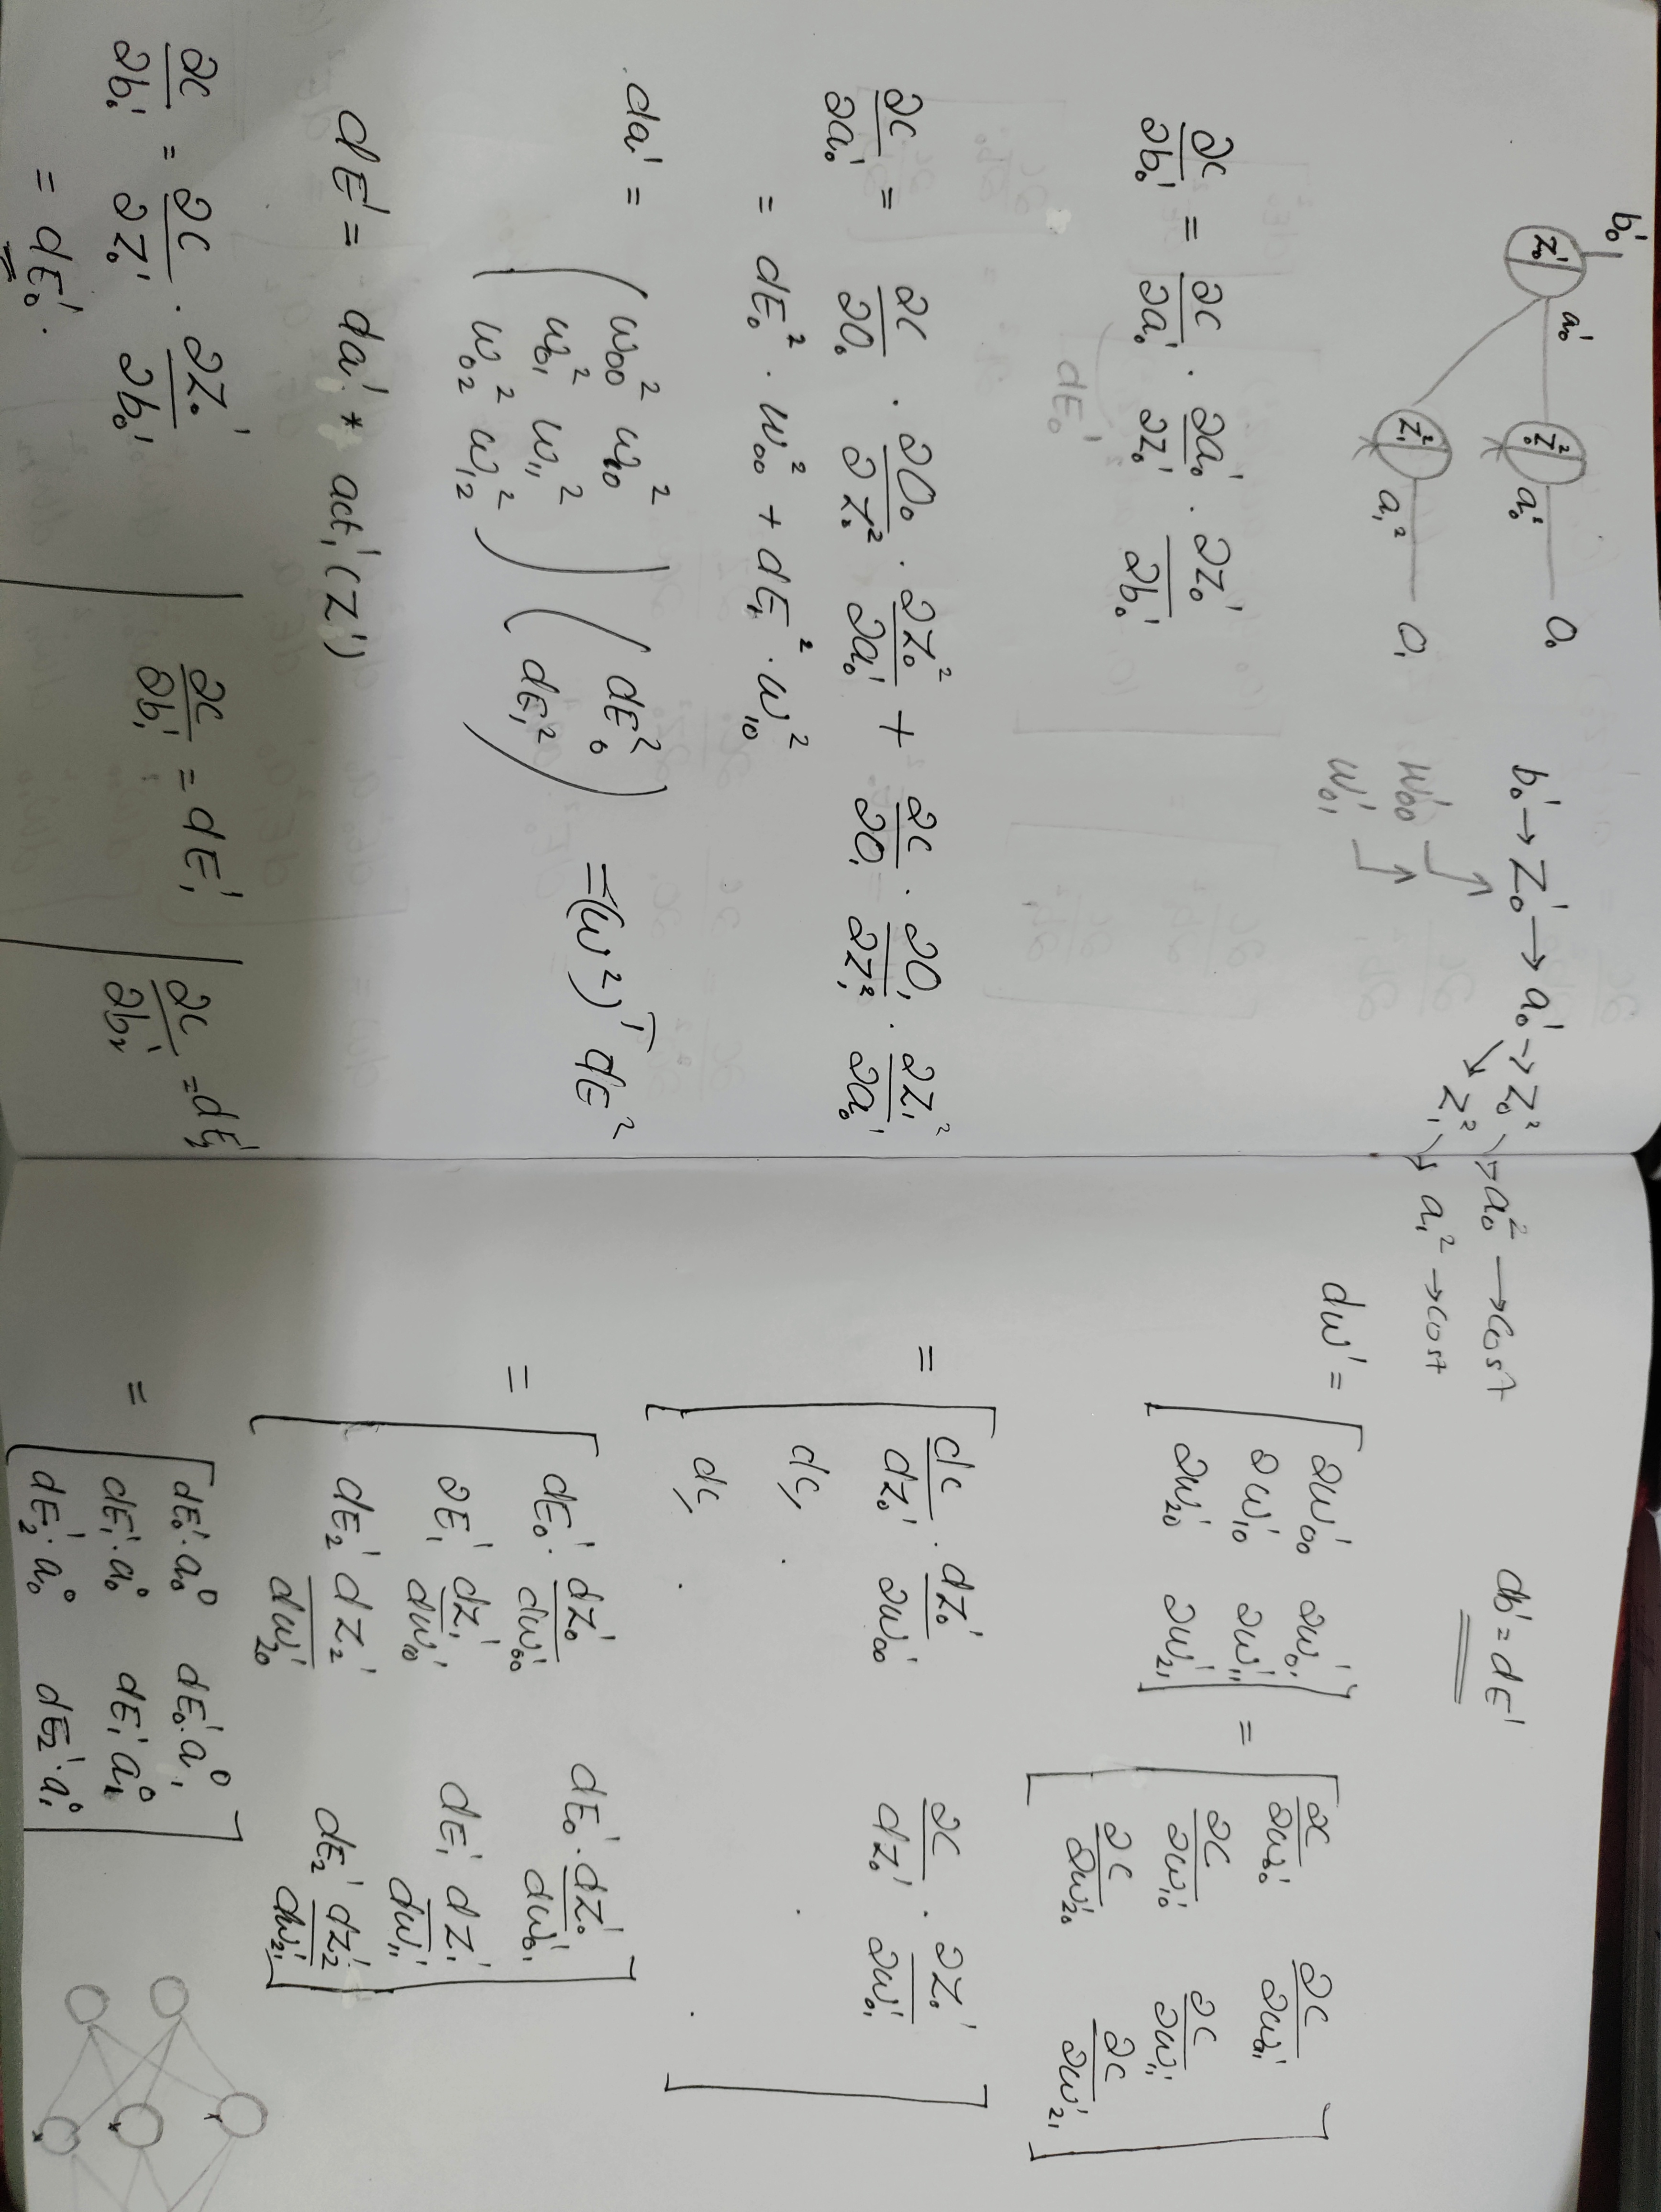 b₀¹
z₀¹ a₀¹ z₀² a₀² O₀
z₁² a₁² O₁
b₀¹ → z₀¹ → a₀¹ → z₀² → a₀² → cost
↘ z₁² → a₁² → cost
w₀₀¹
w₀₁¹
∂c/∂b₀¹ = ∂c/∂a₀¹ · ∂a₀¹/∂z₀¹ · ∂z₀¹/∂b₀¹
∂c/∂a₀¹ = ∂c/∂O₀ · ∂O₀/∂z₀² · ∂z₀²/∂a₀¹ + ∂c/∂O₁ · ∂O₁/∂z₁² · ∂z₁²/∂a₀¹
= dE₀² · w₀₀² + dE₁² · w₁₀²
da¹ = ( w₀₀² w₁₀²
w₀₁² w₁₁²
w₀₂² w₁₂² ) ( dE₀²
dE₁² ) = (w²)ᵀ dE²
dE¹ = da¹ * act₁'(z¹)
∂c/∂b₀¹ = ∂c/∂z₀¹ · ∂z₀¹/∂b₀¹
= dE₀¹.
∂c/∂b₁¹ = dE₁¹
∂c/∂b₂¹ = dE₂¹
db¹ = dE¹
dw¹ = [ ∂w₀₀¹ ∂w₀₁¹
∂w₁₀¹ ∂w₁₁¹
∂w₂₀¹ ∂w₂₁¹ ] = [ ∂c/∂w₀₀¹ ∂c/∂w₀₁¹
∂c/∂w₁₀¹ ∂c/∂w₁₁¹
∂c/∂w₂₀¹ ∂c/∂w₂₁¹ ]
= [ dc/dz₀¹ · dz₀¹/∂w₀₀¹ ∂c/dz₀¹ · ∂z₀¹/∂w₀₁¹
dc, . .
dc, . . ]
= [ dE₀¹ · dz₀¹/dw₀₀¹ dE₀¹ · dz₀¹/dw₀₁¹
∂E₁¹ dz₁¹/dw₁₀¹ dE₁¹ dz₁¹/dw₁₁¹
dE₂¹ dz₂¹/dw₂₀¹ dE₂¹ dz₂¹/dw₂₁¹ ]
= [ dE₀¹·a₀⁰ dE₀¹·a₁⁰
dE₁¹·a₀⁰ dE₁¹a₁⁰
dE₂¹·a₀⁰ dE₂¹·a₁⁰ ]